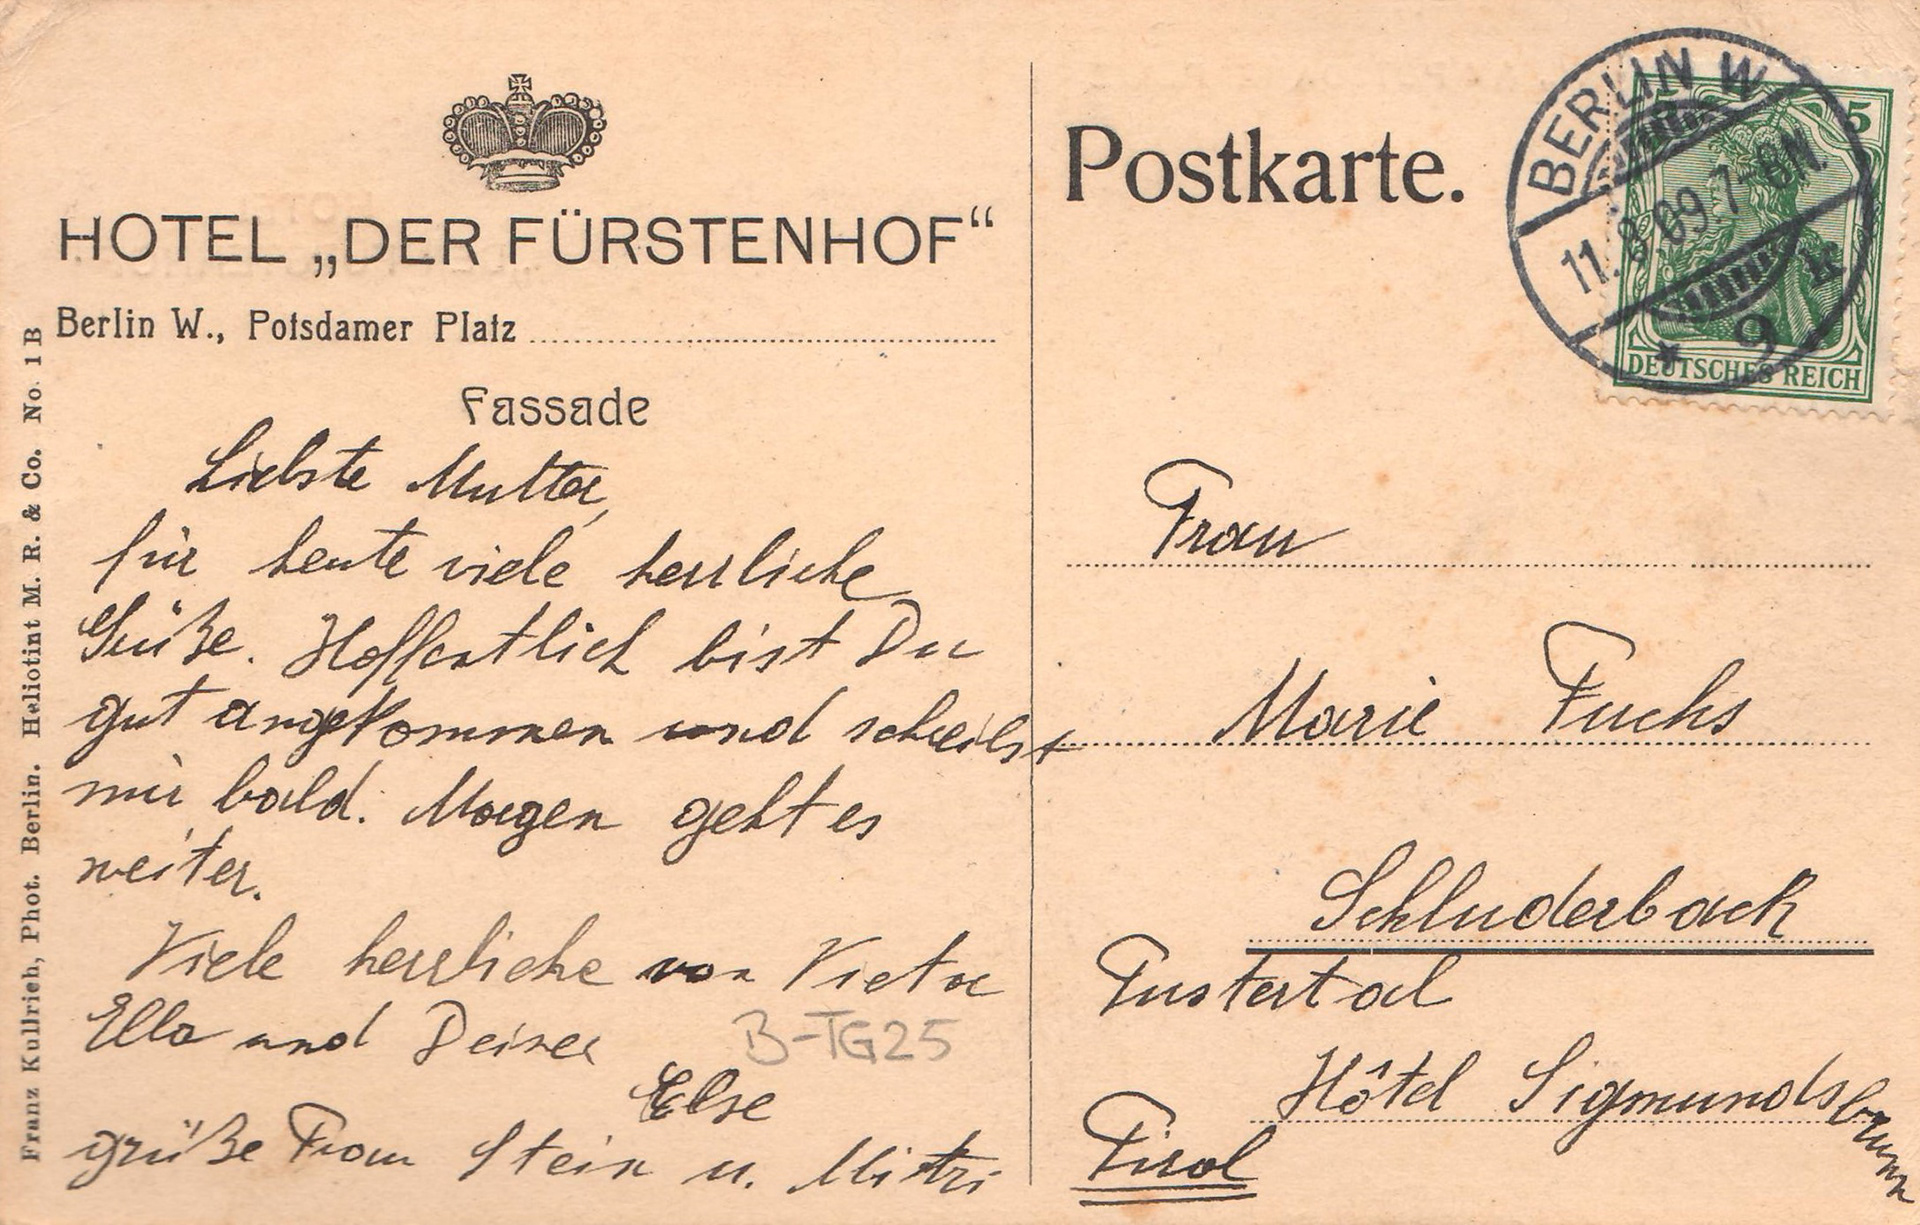 HOTEL „DER FÜRSTENHOF“
Berlin W., Potsdamer Platz
Fassade
Liebste Mutter,
für heute viele herrliche
Grüße. Hoffentlich bist Du
gut angekommen und schreibst
mir bald. Morgen geht es
weiter.
Viele herrliche von
Ella und Deiner
Else
grüße Frau Stein u. Mitzi
B-TG25
Franz Kullrich, Phot. Berlin. Heliotint M. R. & Co. No. 1B
Postkarte.
BERLIN W
11.8.09.7-8N.
* 9 k
5
DEUTSCHES REICH
Frau
Marie Fuchs
Schluderbach
Pustertal
Hôtel Sigmundsbrunn
Tirol